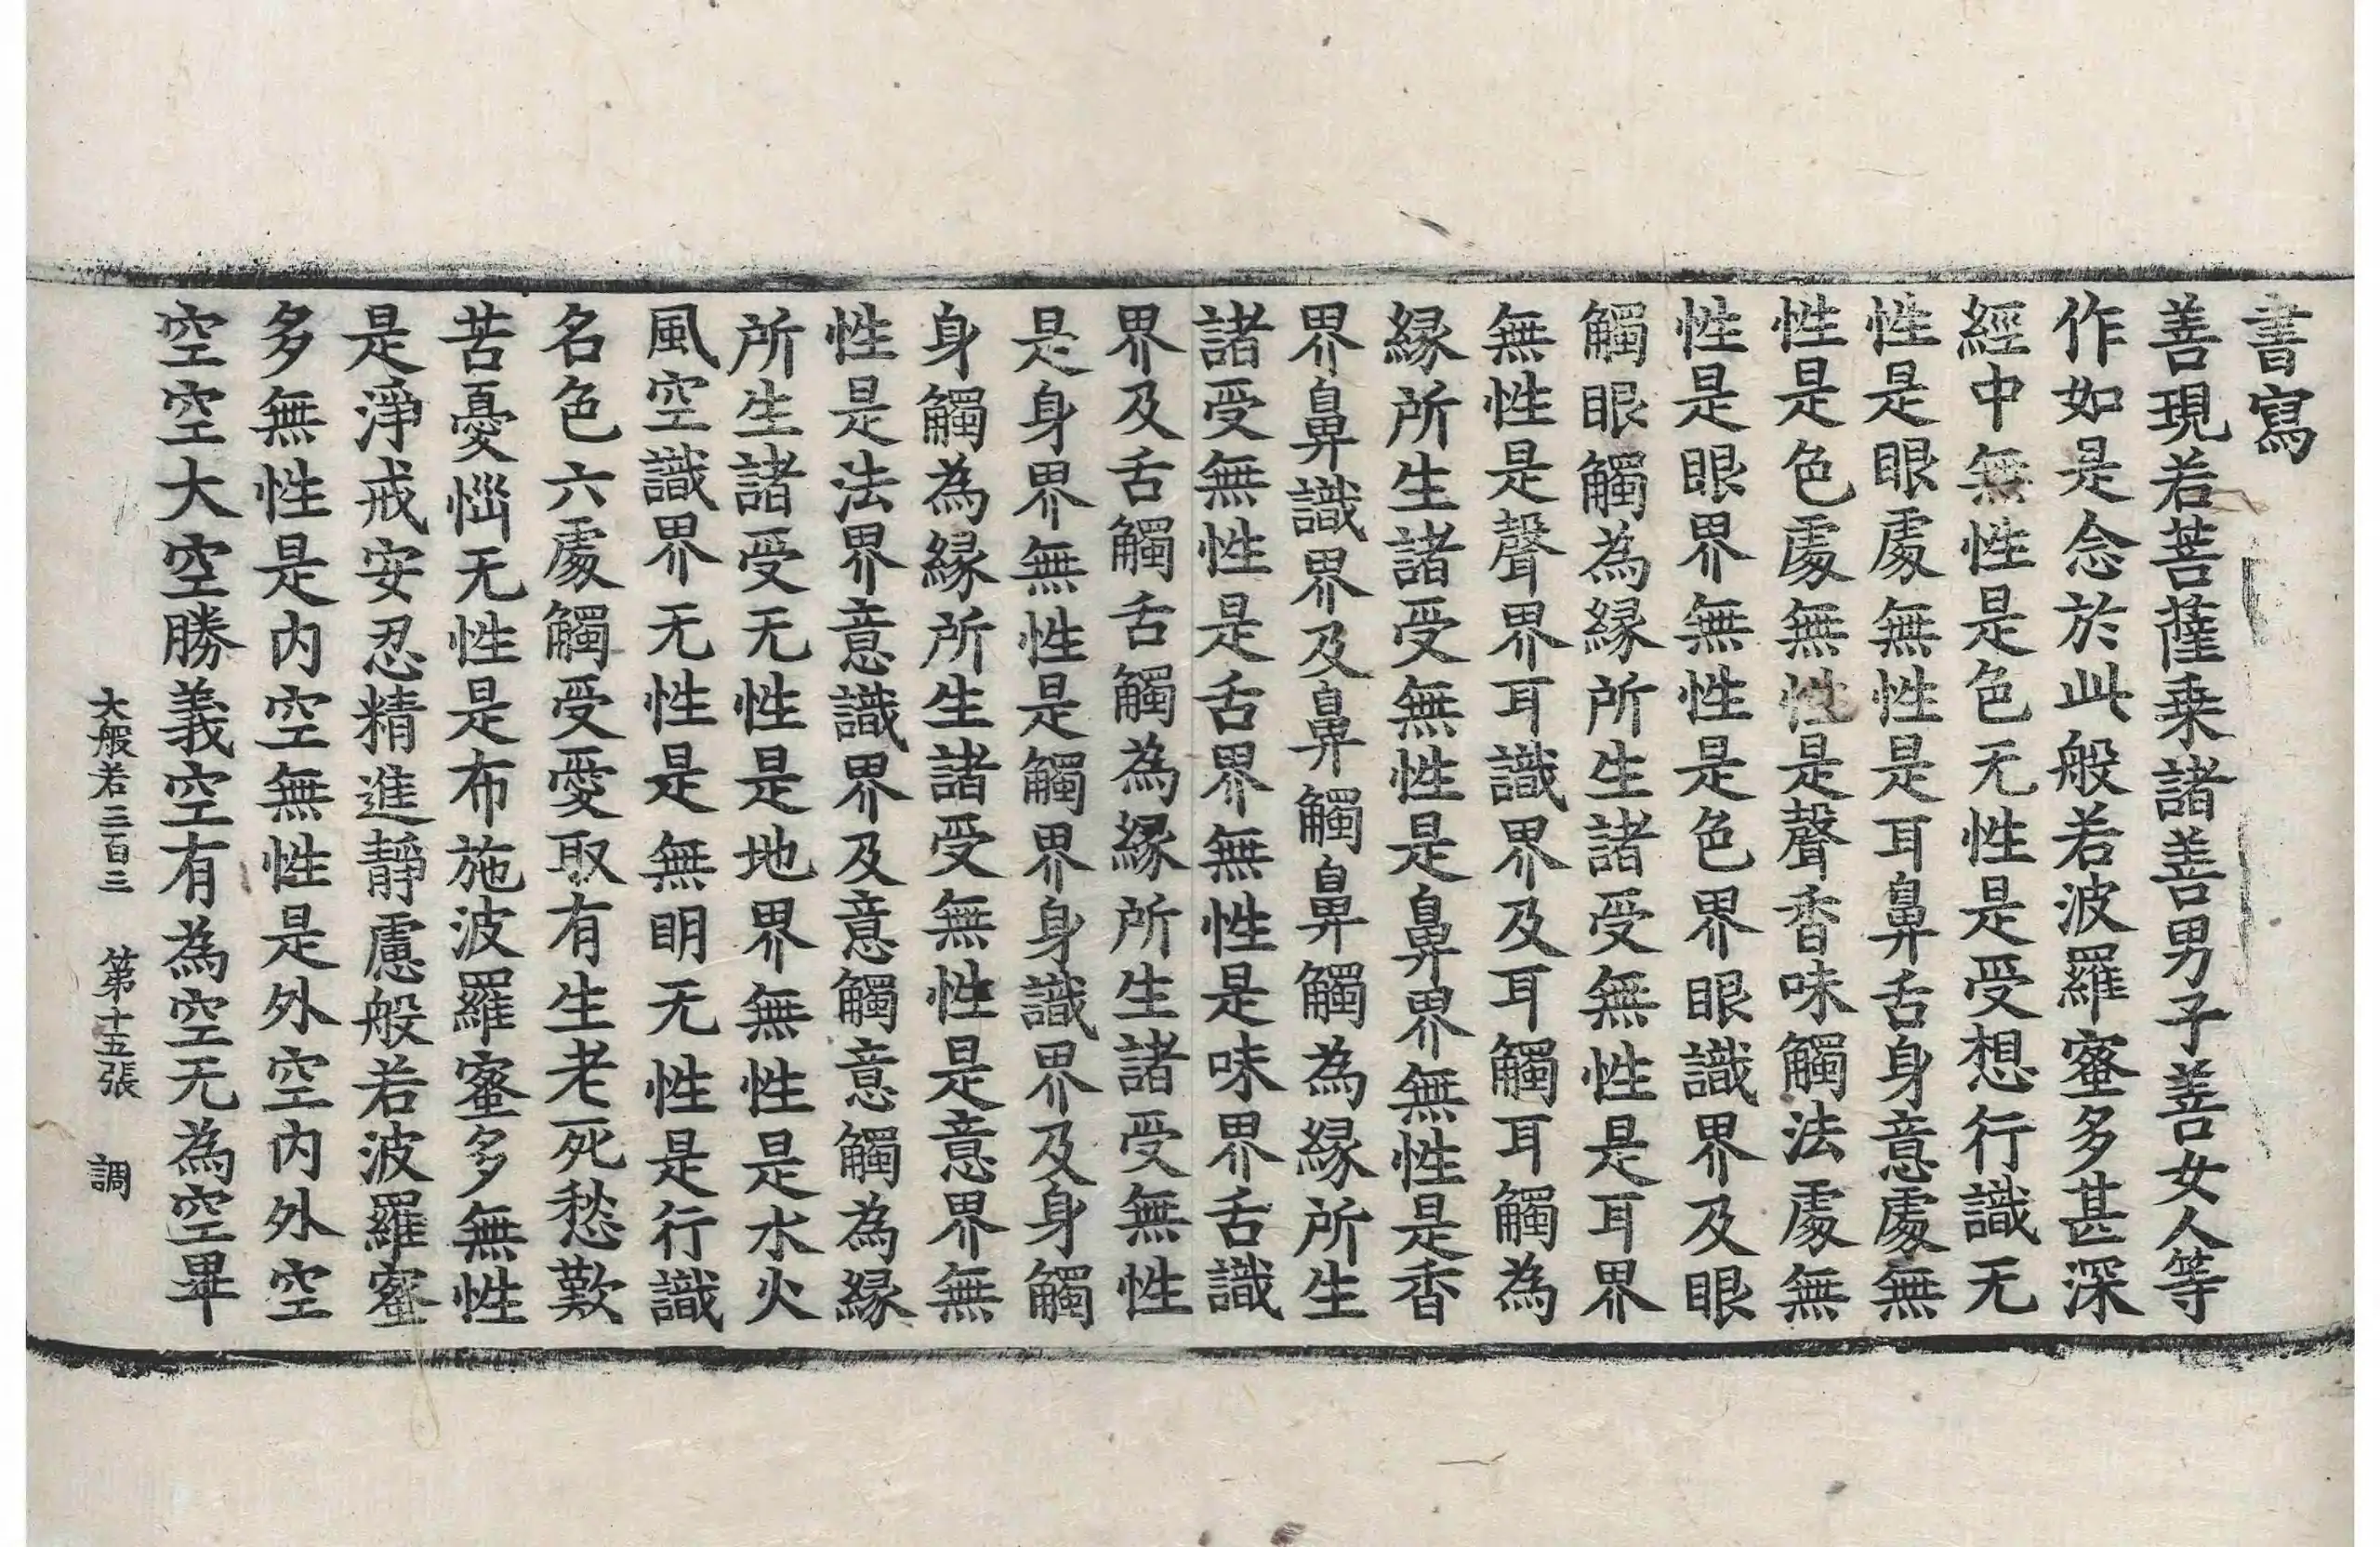 書寫
善現若菩薩乗諸善男子善女人等
作如是念於此般若波羅蜜多甚深
經中無性是色无性是受想行識无
性是眼處無性是耳鼻舌身意處無
性是色處無性是聲香味觸法處無
性是眼界無性是色界眼識界及眼
觸眼觸為縁所生諸受無性是耳界
無性是聲界耳識界及耳觸耳觸為
縁所生諸受無性是鼻界無性是香
界鼻識界及鼻觸鼻觸為縁所生
諸受無性是舌界無性是味界舌識
界及舌觸舌觸為縁所生諸受無性
是身界無性是觸界身識界及身觸
身觸為縁所生諸受無性是意界無
性是法界意識界及意觸意觸為縁
所生諸受无性是地界無性是水火
風空識界无性是無明无性是行識
名色六處觸受愛取有生老死愁歎
苦憂惱无性是布施波羅蜜多無性
是淨戒安忍精進靜慮般若波羅蜜
多無性是内空無性是外空内外空
空空大空勝義空有為空无為空畢
大般若三百三 第十五張 調